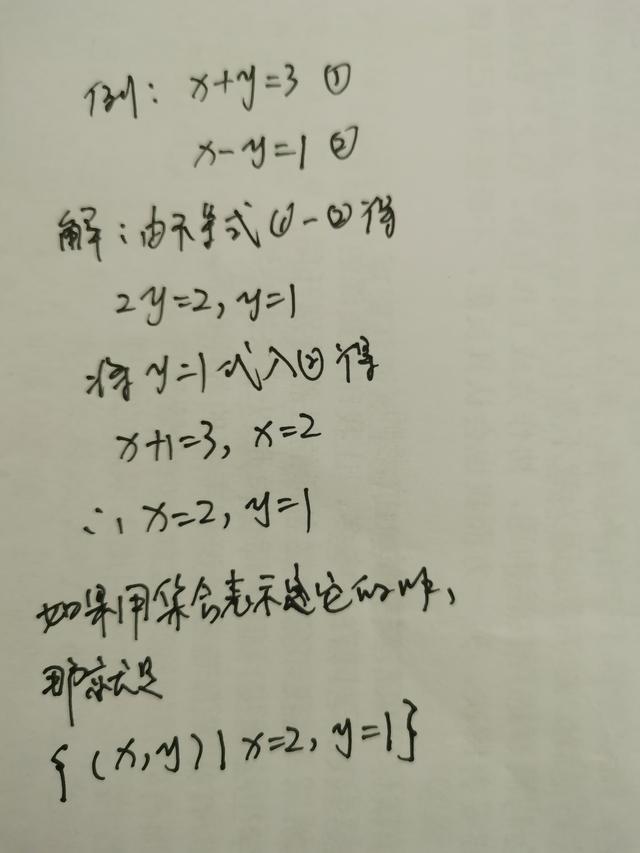 例: x+y=3 ①
x-y=1 ②
解:由不等式①-②得
2y=2, y=1
将y=1式入②得
x+1=3, x=2
∴ x=2, y=1
如果用集合表示它的,
那就是
{(x,y)|x=2, y=1}